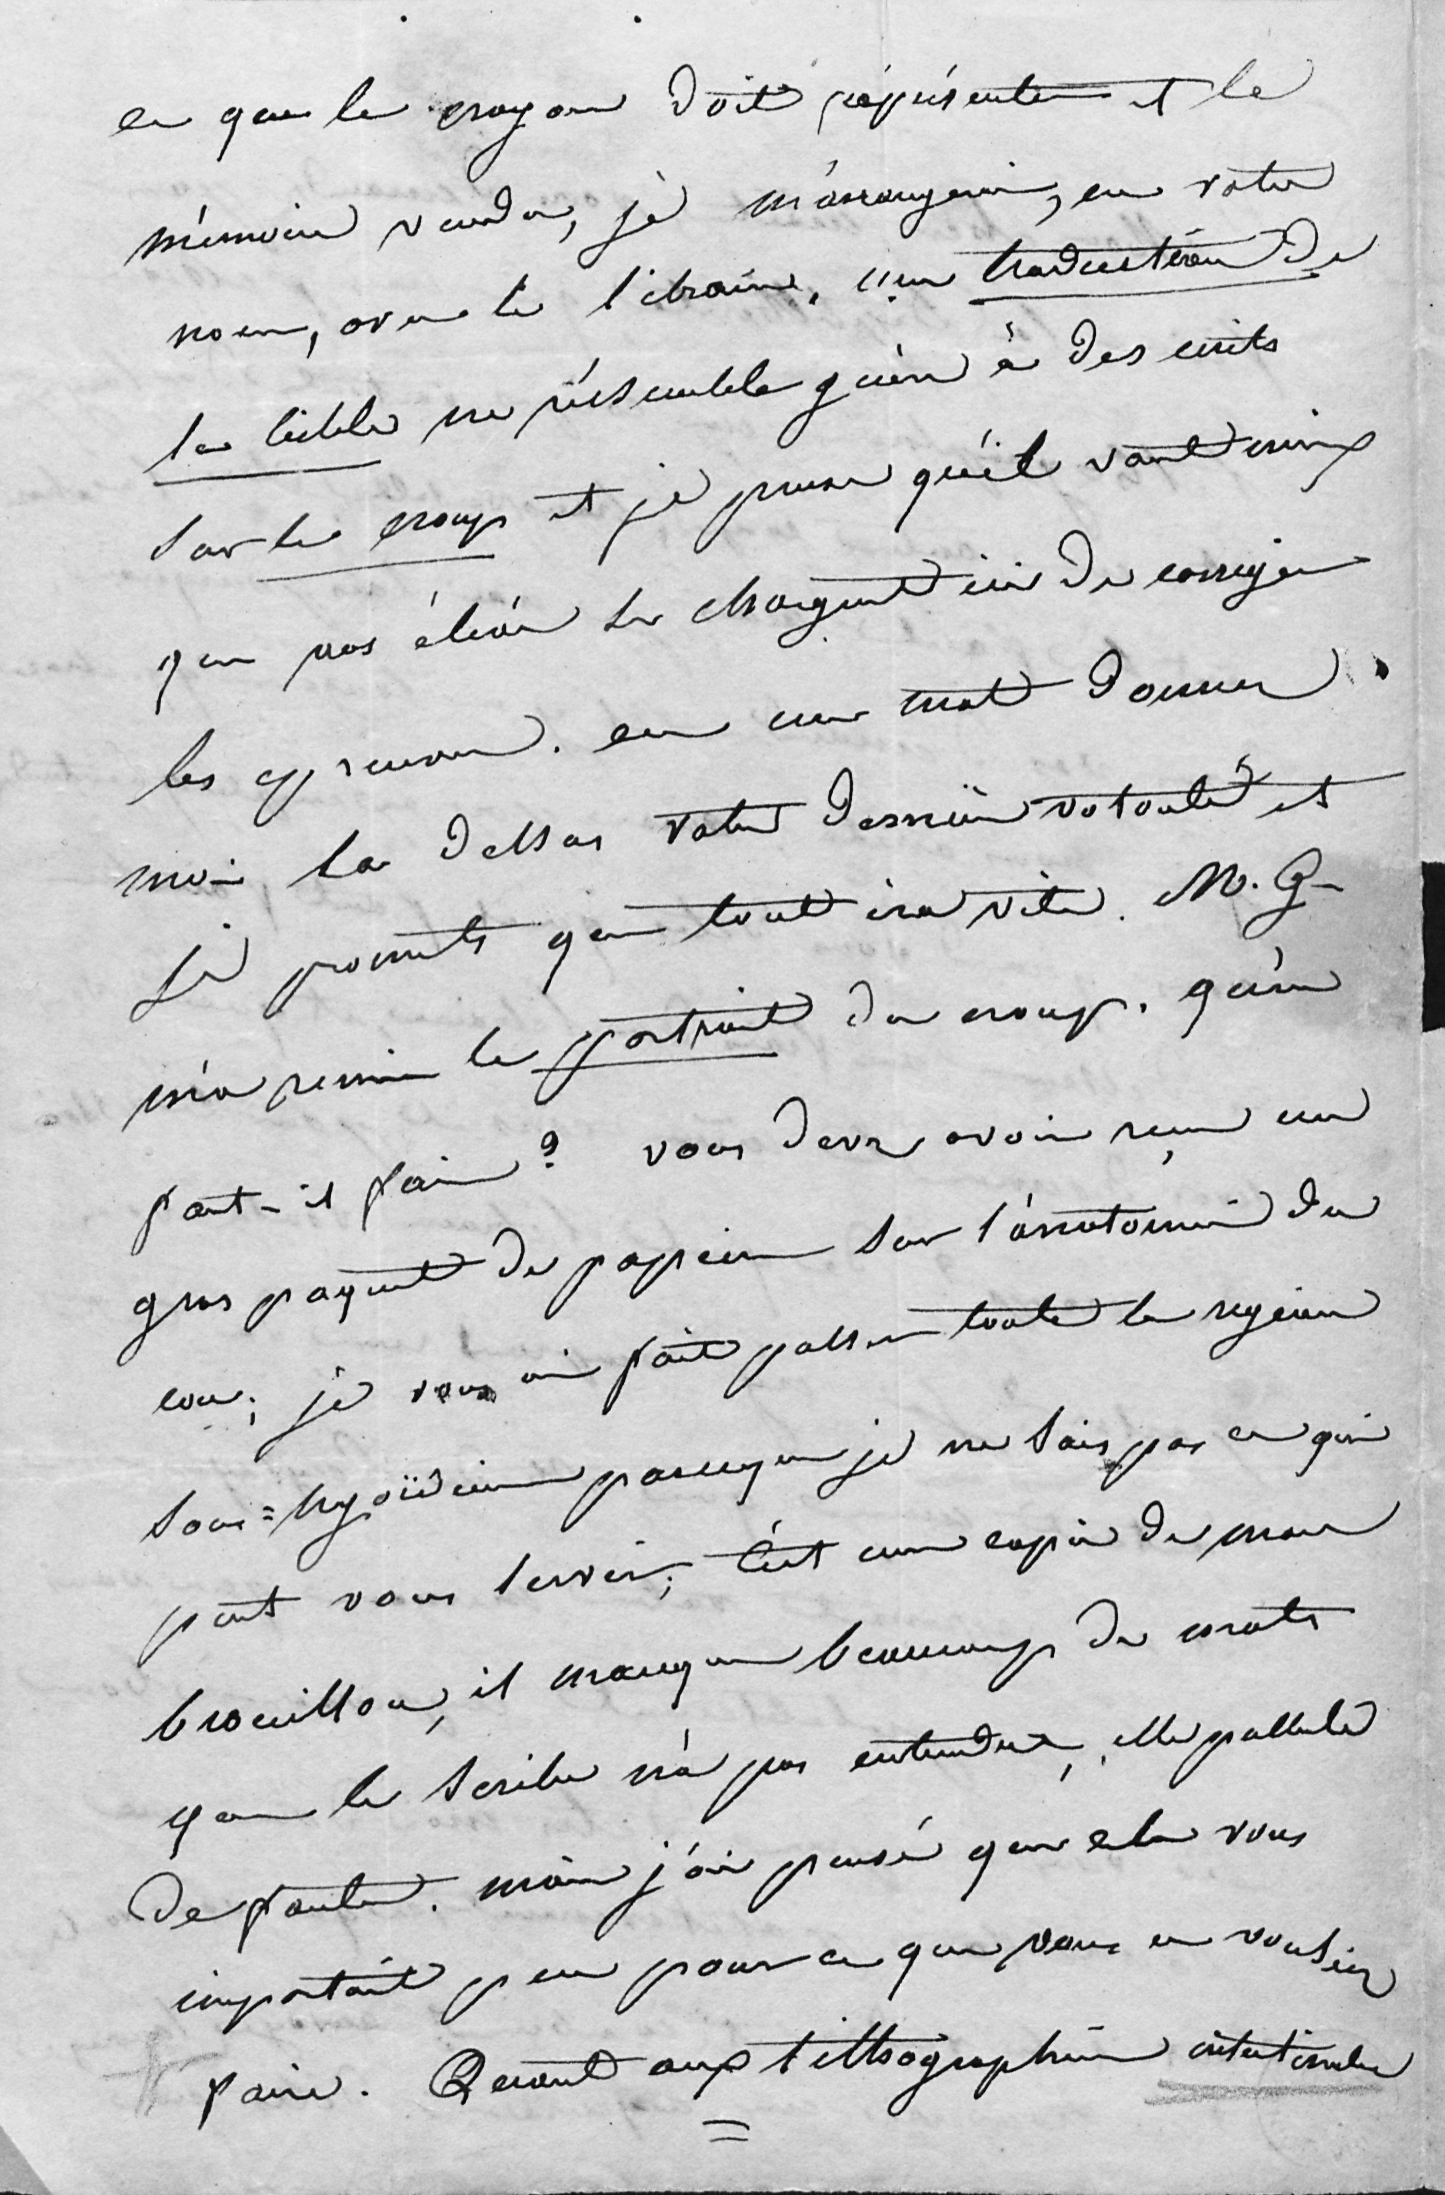 ce que le crayon doit représenter et le
mémoire vendu, je m'arrangerai, en votre
nom, avec le libraire. une traduction de
la bible ne ressemble guère à des écrits
sur le croup et je pense qu'il vaut mieux
que vos élèves se chargent ici de corriger
les epreuves. en un mot donnez
moi la dessus votre dernière volonté et
je promets que tout ira vite. M. G-
m'a remis le portrait du croup. qu'en
faut-il faire? vous devez avoir reçu un
gros paquet de papiers sur l'anatomie du
cou; je vous ai fait passer toute la region
sous=hyoïdienne parceque je ne sais pas ce qui
peut vous servir; C'est une copie de mon
brouillon, il manque beaucoup de mots
que le scribe n'a pas entendus, elle pullule
de fautes. mais j'ai pensé que cela vous
importait peu pour ce que vous en vouliez
faire. Quant aux lithographies intestinales